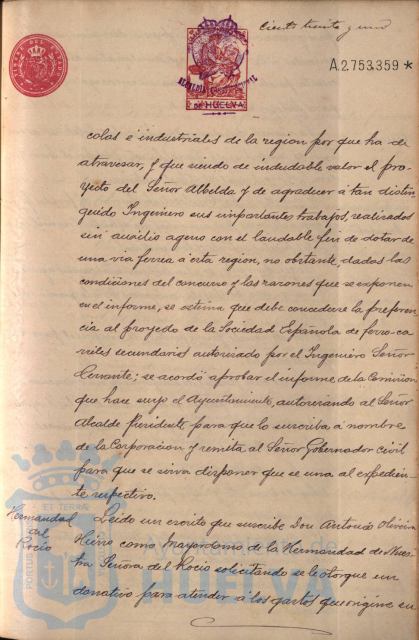 Ciento treinta y uno
A.2.753.359 *
ALCALDIA CONSTITUCIONAL
DE HUELVA
colas e industriales de la region por que ha de
atravesar, y que siendo de indudable valor el pro-
yecto del Señor Albelda y de agradecer á tan distin-
guido Ingeniero sus importantes trabajos, realizados
sin auxilio ageno con el laudable fin de dotar de
una via ferrea á esta region, no obstante, dadas las
condiciones del concurso y las razones que se exponen
en el informe, se estima que debe concederse la preferen-
cia al proyecto de la Sociedad Española de ferro-ca-
rriles secundarios autorizado por el Ingeniero Señor
Cervante; se acordó aprobar el informe de la Comision
que hace suyo el Ayuntamiento, autorizando al Señor
Alcalde Presidente para que lo suscriba á nombre
de la Corporacion y remita al Señor Gobernador civil
para que se sirva disponer que se una al expedien-
te respectivo.
Hermandad
del
Rocio
Leido un escrito que suscribe Don Antonio Oliveira
Hierro como Mayordomo de la Hermandad de Nues-
tra Señora del Rocio solicitando se le otorgue un
donativo para atender á los gastos que origine su
Ayuntamiento de
HUELVA